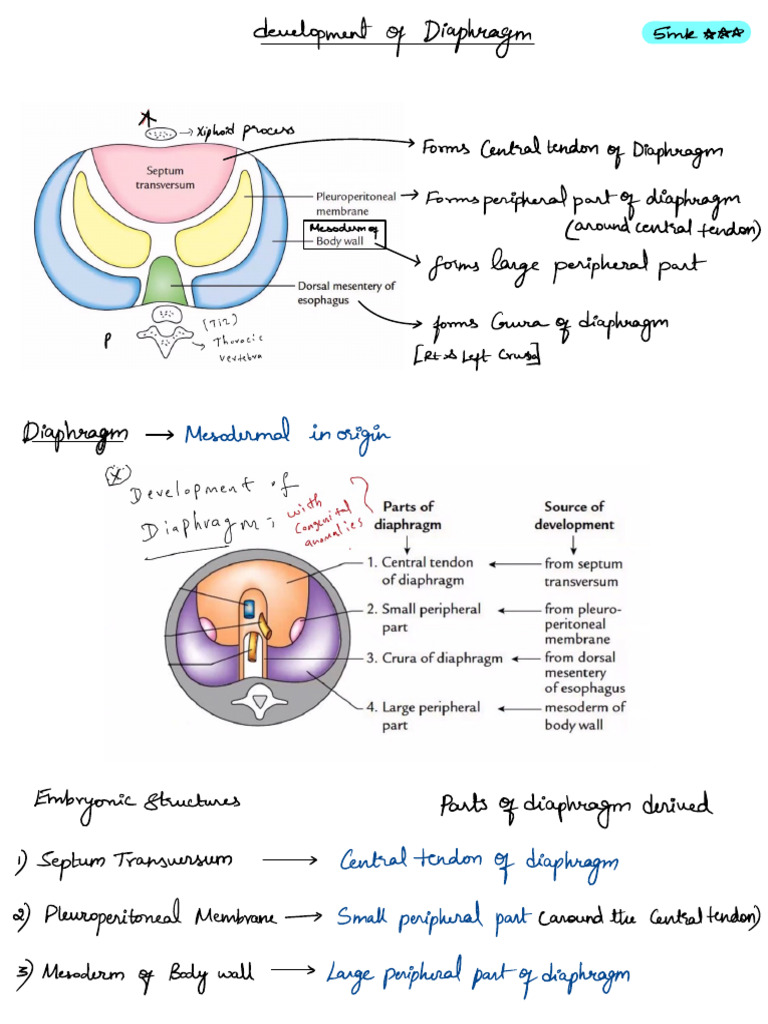 development of Diaphragm
5mk ☆☆☆
A
→ Xiphoid process
Septum
transversum
→ Forms Central tendon of Diaphragm
Pleuroperitoneal
membrane
→ Forms peripheral part of diaphragm
(around central tendon)
Mesoderm of
Body wall
→ forms large peripheral part
Dorsal mesentery of
esophagus
→ forms Crura of diaphragm
[Rt & Left Crus]
P
(T12)
→ Thoracic
vertebra
Diaphragm → Mesodermal in origin
Development of
Diaphragm;
with
Congenital
anomalies
Parts of
diaphragm
Source of
development
1. Central tendon
of diaphragm
from septum
transversum
2. Small peripheral
part
from pleuro-
peritoneal
membrane
3. Crura of diaphragm
from dorsal
mesentery
of esophagus
4. Large peripheral
part
mesoderm of
body wall
Embryonic Structures
Parts of diaphragm derived
1) Septum Transversum → Central tendon of diaphragm
2) Pleuroperitoneal Membrane → Small peripheral part (around the Central tendon)
3) Mesoderm of Body wall → Large peripheral part of diaphragm